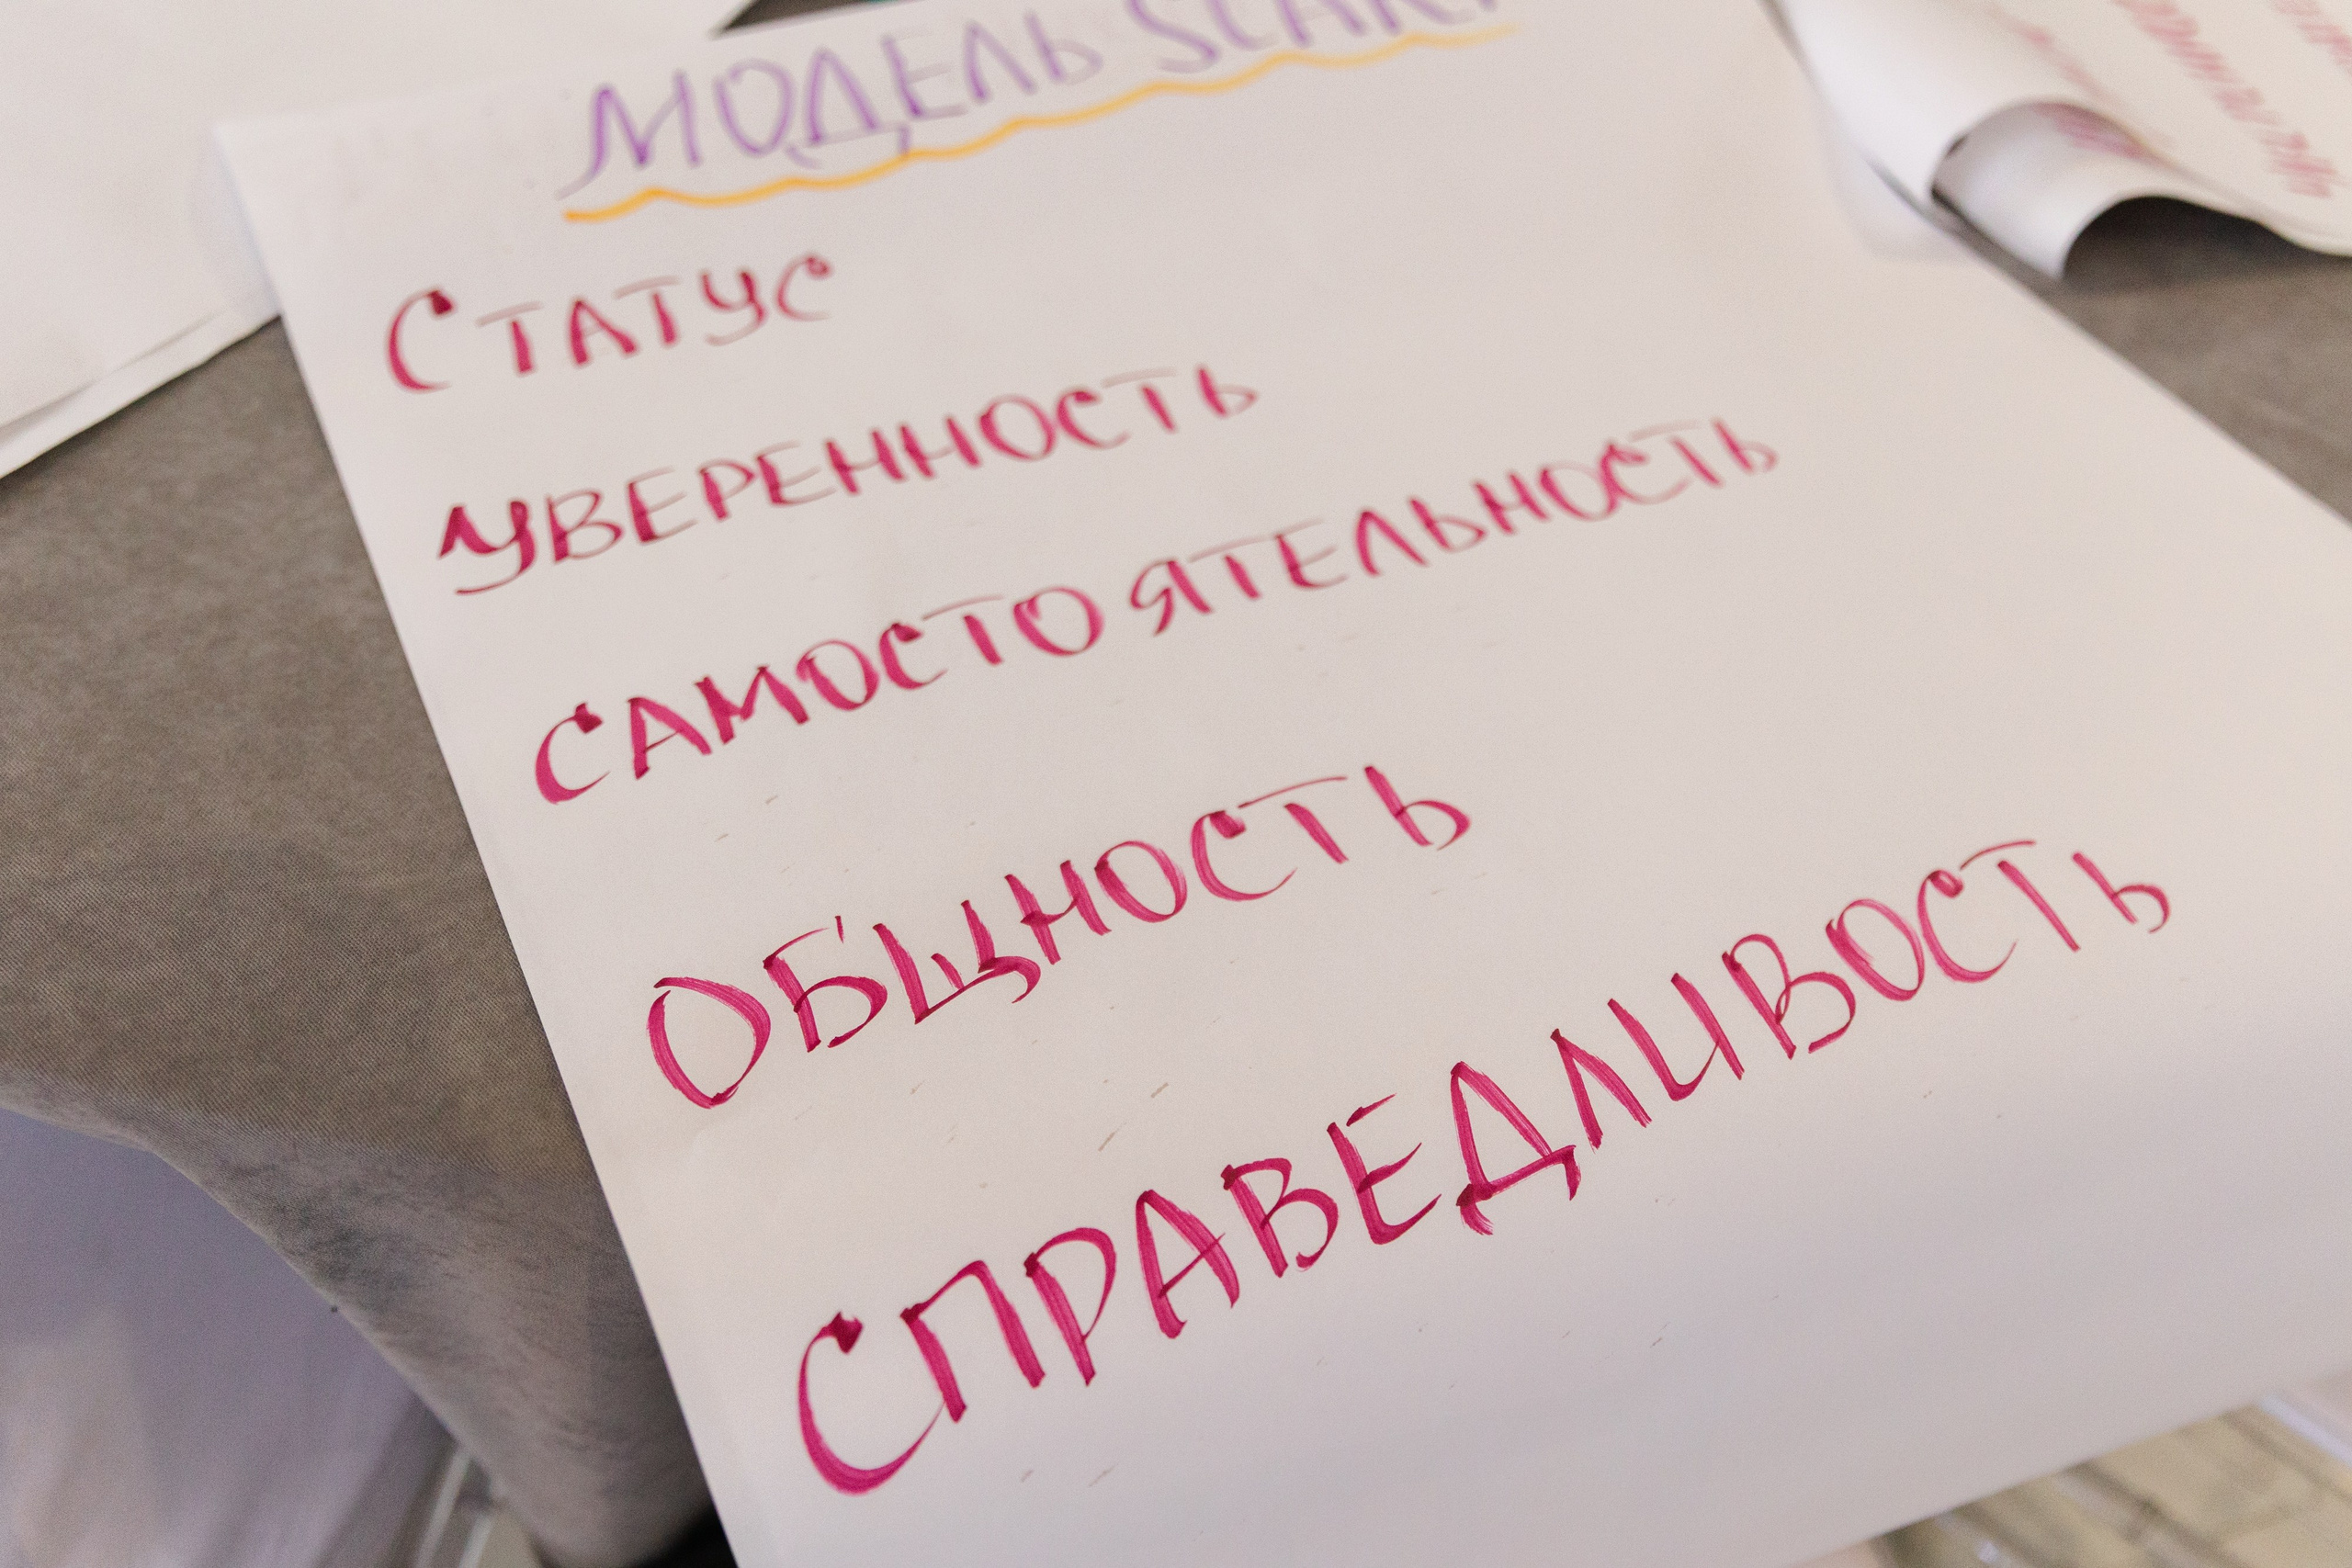 МОДЕЛЬ SCARF
СТАТУС
УВЕРЕННОСТЬ
САМОСТОЯТЕЛЬНОСТЬ
ОБЩНОСТЬ
СПРАВЕДЛИВОСТЬ